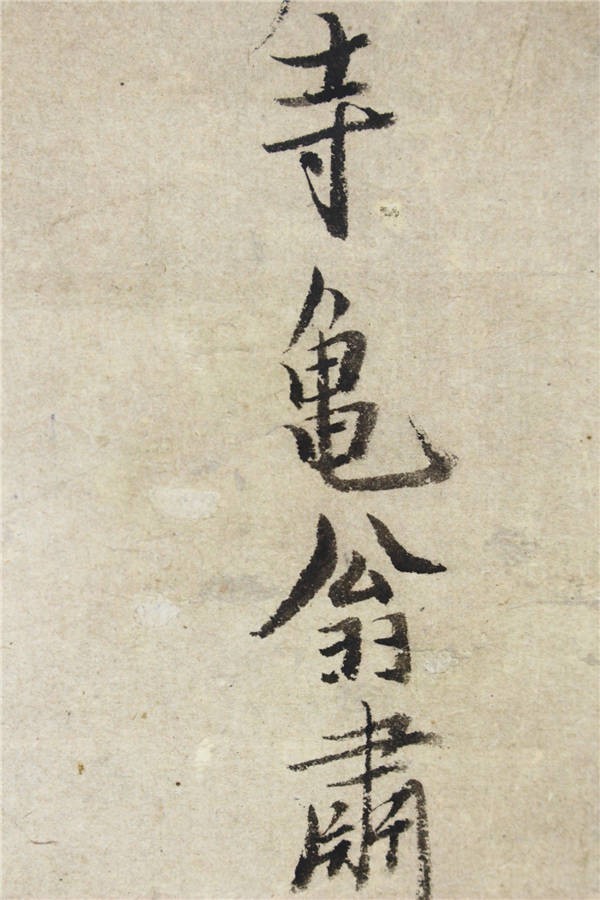 寺亀翁肅